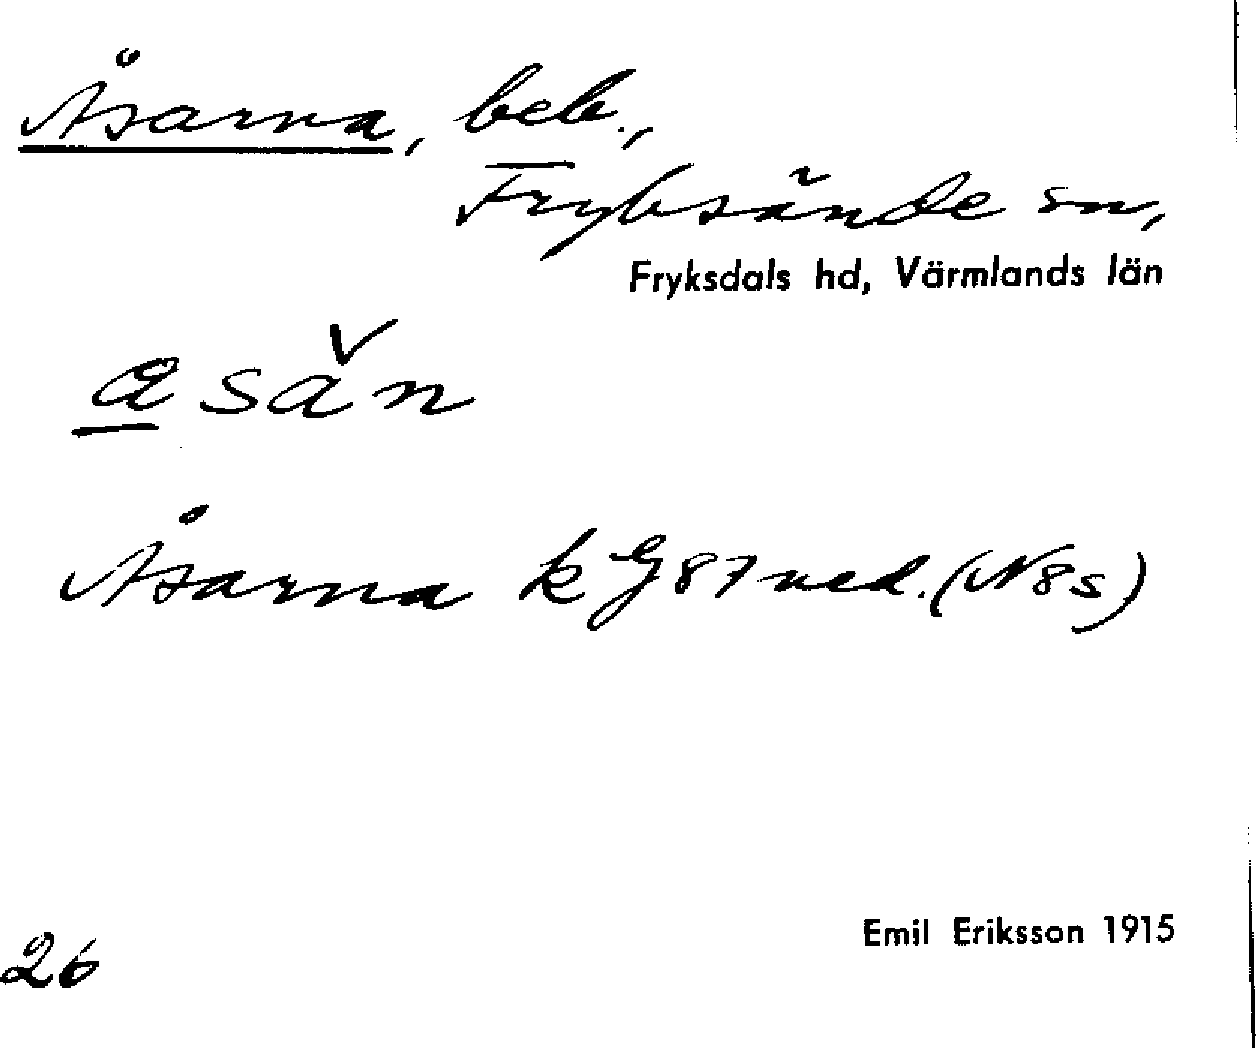 Åsarna, beb.,
Fryksände sn,
Fryksdals hd, Värmlands län
a sǎn
Åsarna k G 87 ned. (N 8 s)
Emil Eriksson 1915
26